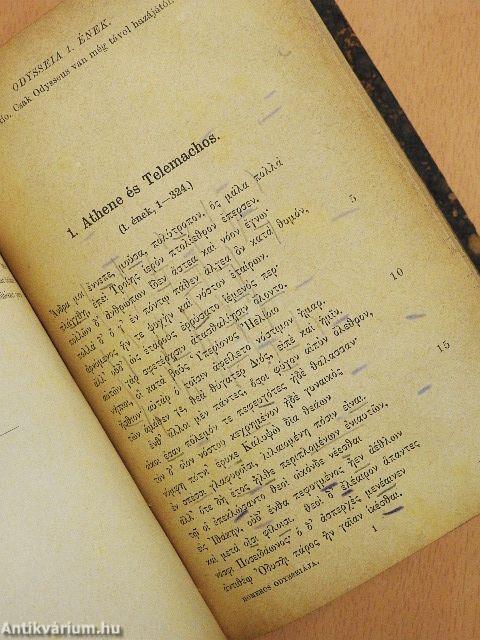 ODYSSEIA 1. ÉNEK.
Csak Odysseus van még távol hazájától.
1. Athene és Telemachos.
(1. ének, 1—324.)
Ἄνδρα μοι ἔννεπε, μοῦσα, πολύτροπον, ὃς μάλα πολλὰ
πλάγχθη, ἐπεὶ Τροίης ἱερὸν πτολίεθρον ἔπερσεν·
πολλῶν δ' ἀνθρώπων ἴδεν ἄστεα καὶ νόον ἔγνω,
πολλὰ δ' ὅ γ' ἐν πόντῳ πάθεν ἄλγεα ὃν κατὰ θυμόν,
ἀρνύμενος ἥν τε ψυχὴν καὶ νόστον ἑταίρων. 5
ἀλλ' οὐδ' ὣς ἑτάρους ἐρρύσατο ἱέμενός περ·
αὐτῶν γὰρ σφετέρῃσιν ἀτασθαλίῃσιν ὄλοντο.
νήπιοι, οἳ κατὰ βοῦς Ὑπερίονος Ἠελίοιο
ἤσθιον· αὐτὰρ ὁ τοῖσιν ἀφείλετο νόστιμον ἦμαρ.
τῶν ἁμόθεν γε, θεά, θύγατερ Διός, εἰπὲ καὶ ἡμῖν. 10
ἔνθ' ἄλλοι μὲν πάντες, ὅσοι φύγον αἰπὺν ὄλεθρον,
οἴκοι ἔσαν πόλεμόν τε πεφευγότες ἠδὲ θάλασσαν·
τὸν δ' οἶον νόστου κεχρημένον ἠδὲ γυναικὸς
νύμφη πότνι' ἔρυκε Καλυψὼ δῖα θεάων
ἐν σπέσσι γλαφυροῖσι, λιλαιομένη πόσιν εἶναι. 15
ἀλλ' ὅτε δὴ ἔτος ἦλθε περιπλομένων ἐνιαυτῶν,
τῷ οἱ ἐπεκλώσαντο θεοὶ οἶκόνδε νέεσθαι
εἰς Ἰθάκην, οὐδ' ἔνθα πεφυγμένος ἦεν ἀέθλων
καὶ μετὰ οἷσι φίλοισι. θεοὶ δ' ἐλέαιρον ἅπαντες
νόσφι Ποσειδάωνος· ὁ δ' ἀσπερχὲς μενέαινεν
ἀντιθέῳ Ὀδυσῆι πάρος ἣν γαῖαν ἱκέσθαι.
HOMEROS ODYSSEIÁJA. 1
Antikvárium.hu